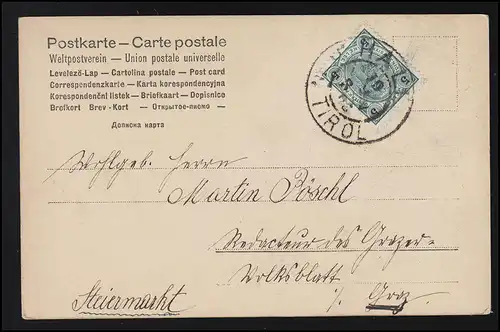 Postkarte — Carte postale
Weltpostverein — Union postale universelle
Levelező-Lap — Cartolina postale — Post card
Correspondenzkarte — Karta korespondencyjna
Korespondenční listek — Briefkaart — Dopisnica
Brefkort Brev-Kort — Открытое-писмо —
Дописна карта
HALL
TIROL
Wohlgeb. Herrn
Martin Pöschl
Redacteur des Grazer-
Volksblatt
Graz
Steiermarkt